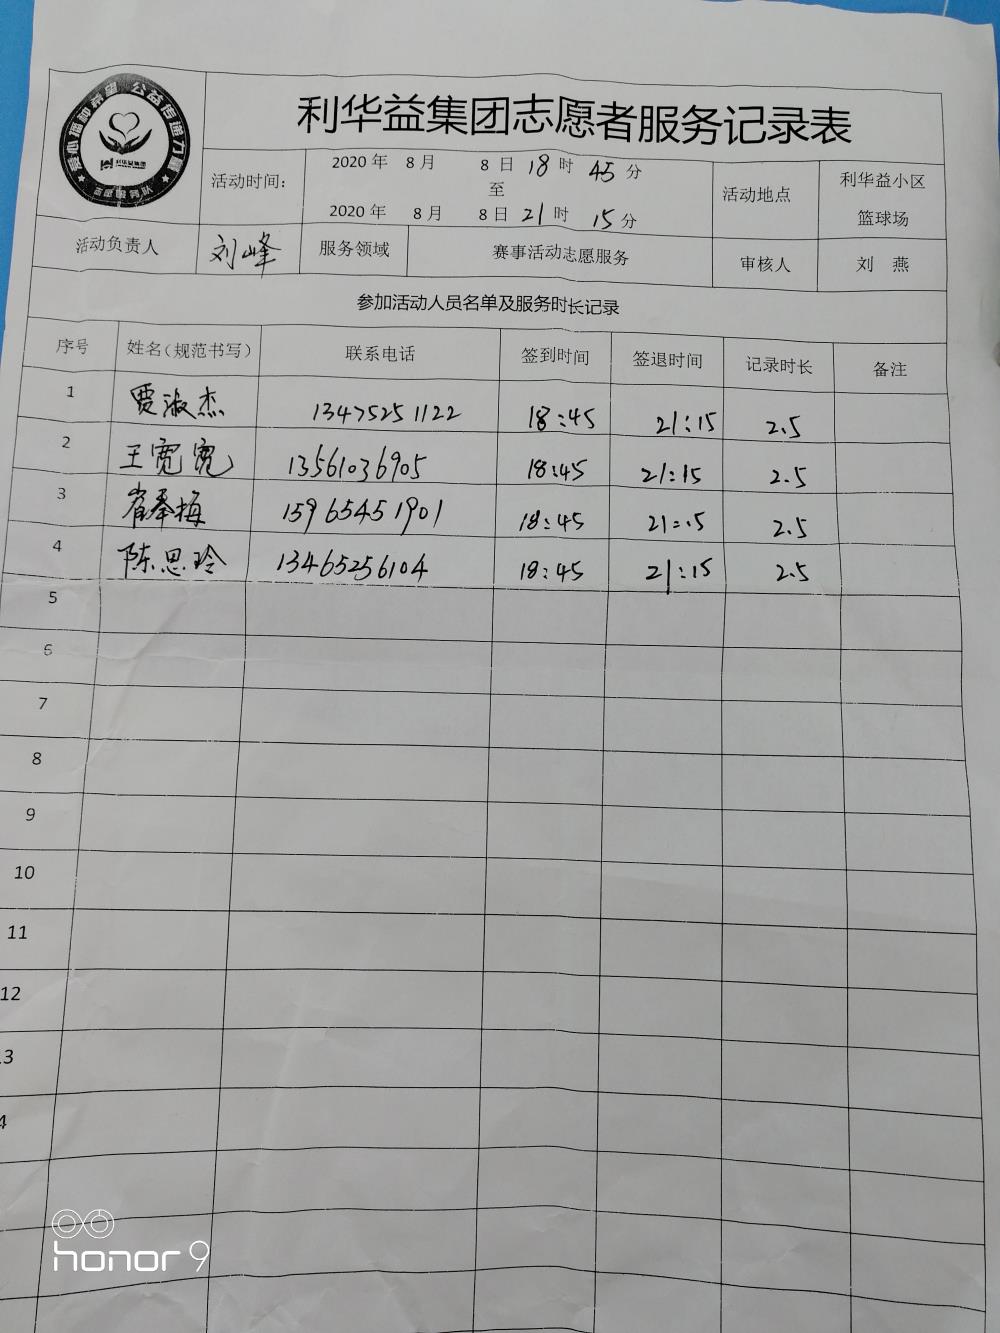 爱心播种希望 公益传递力量
利华益集团
利华益集团志愿者服务记录表
活动时间：
2020 年 8 月 8 日 18 时 45 分
至
2020 年 8 月 8 日 21 时 15 分
活动地点
利华益小区
篮球场
活动负责人 刘峰 服务领域 赛事活动志愿服务 审核人 刘 燕
参加活动人员名单及服务时长记录
序号 姓名（规范书写） 联系电话 签到时间 签退时间 记录时长 备注
1 贾淑杰 13475251122 18:45 21:15 2.5
2 王宽宽 13561036905 18:45 21:15 2.5
3 梅 15965451901 18:45 21:15 2.5
4 陈思玲 13465256104 18:45 21:15 2.5
5
6
7
8
9
10
11
12
.3
4
honor 9